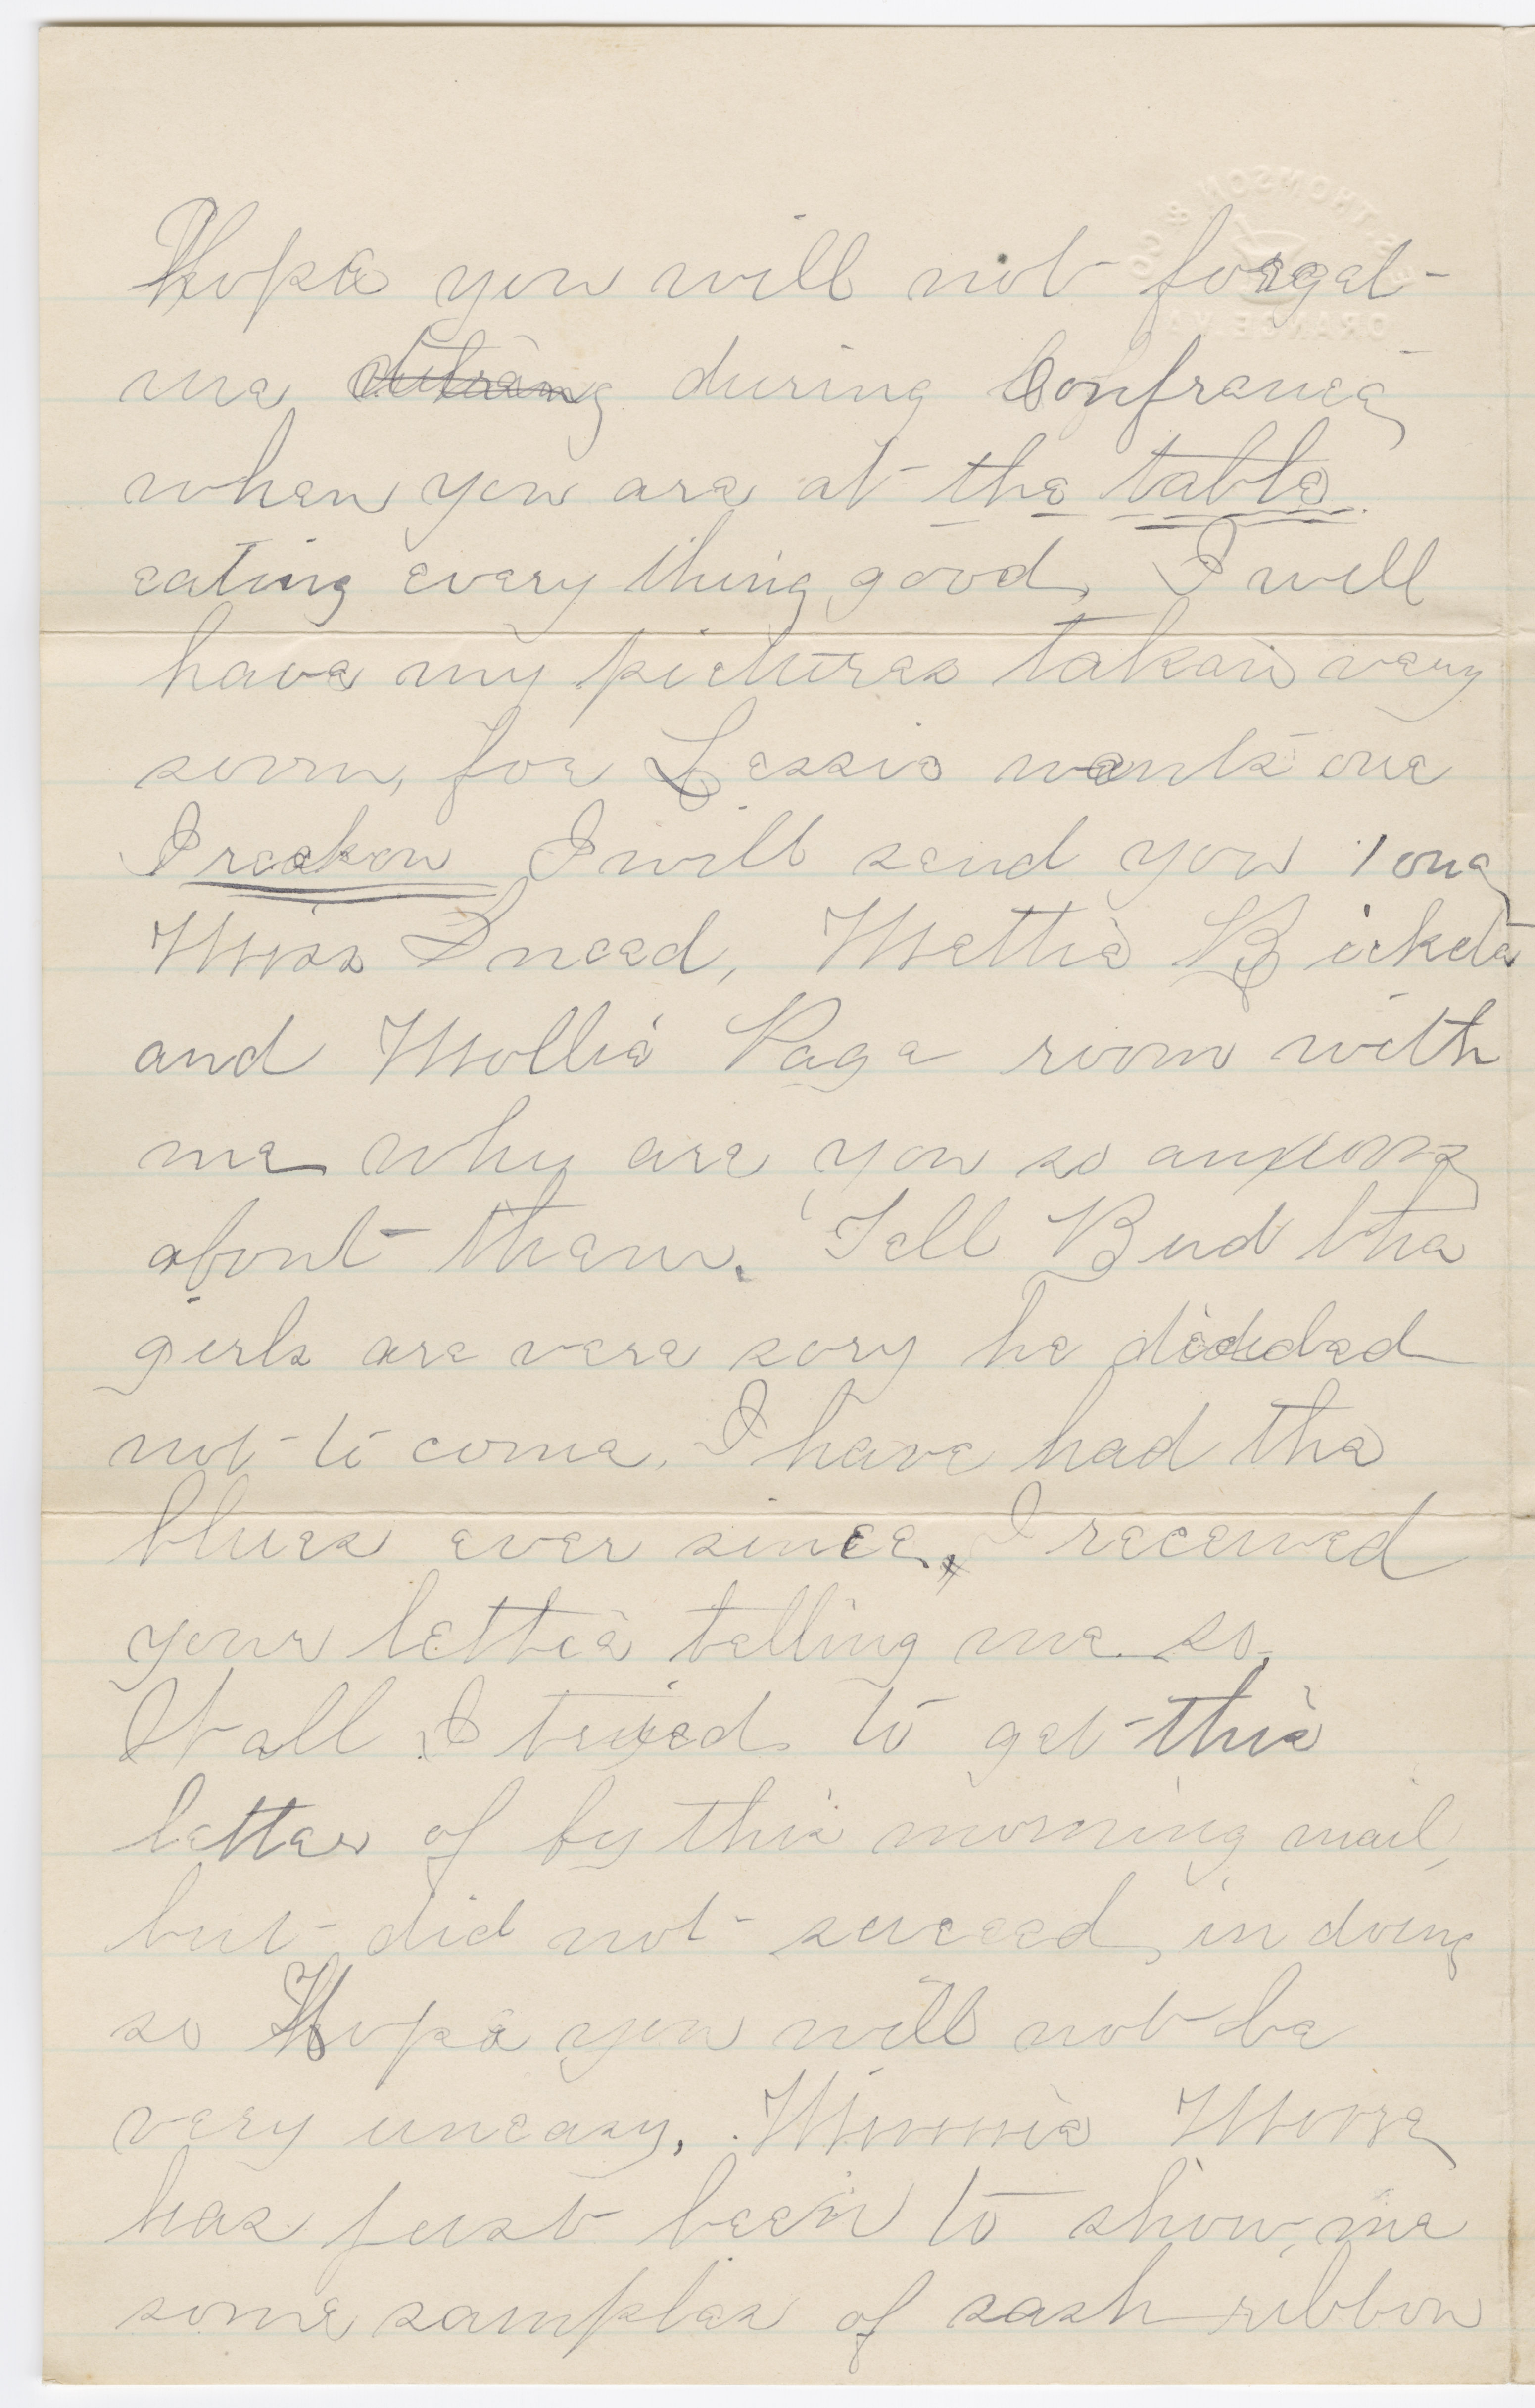 Hope you will not forget
me during Confrance
when you are at the table
eating every thing good, I will
have my pictures taken very
soon, for Lessie wants one
I reckon I will send you 1 one
Miss Snead, Mettie
and Mollie Page room with
me why are you so anxious
about them. Tell Bud the
girls are vere sory he dicided
not to come. I have had the
blues ever since, I received
your letter telling me so.
I tried to get this
letter of by this morning mail,
but did not suceed in doing
so Hope you will not be
very uneasy. Minnie Moore
has just been to show me
some samples of sash ribbon